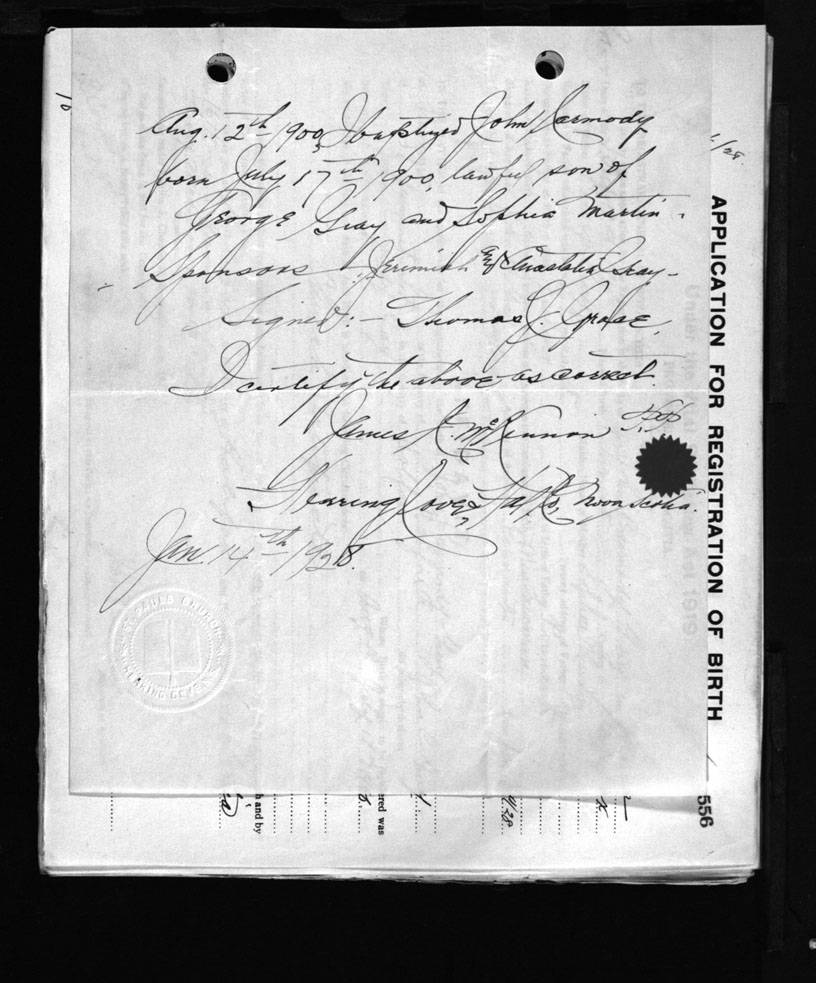 Aug. 12th 1900, I baptized John Karmody
born July 17th 1900, lawful son of
George Gray and Sophia Martin.
Sponsors Jerimiah and Anastatia Gray -
Signed: - Thomas J. Grace.
I certify the above as correct.
James A. McKinnon P.P.
Hearing Cove, Hfx Co, Nova Scotia.
Jan. 14th 1928.
10
APPLICATION FOR REGISTRATION OF BIRTH
556
ered was
h and by